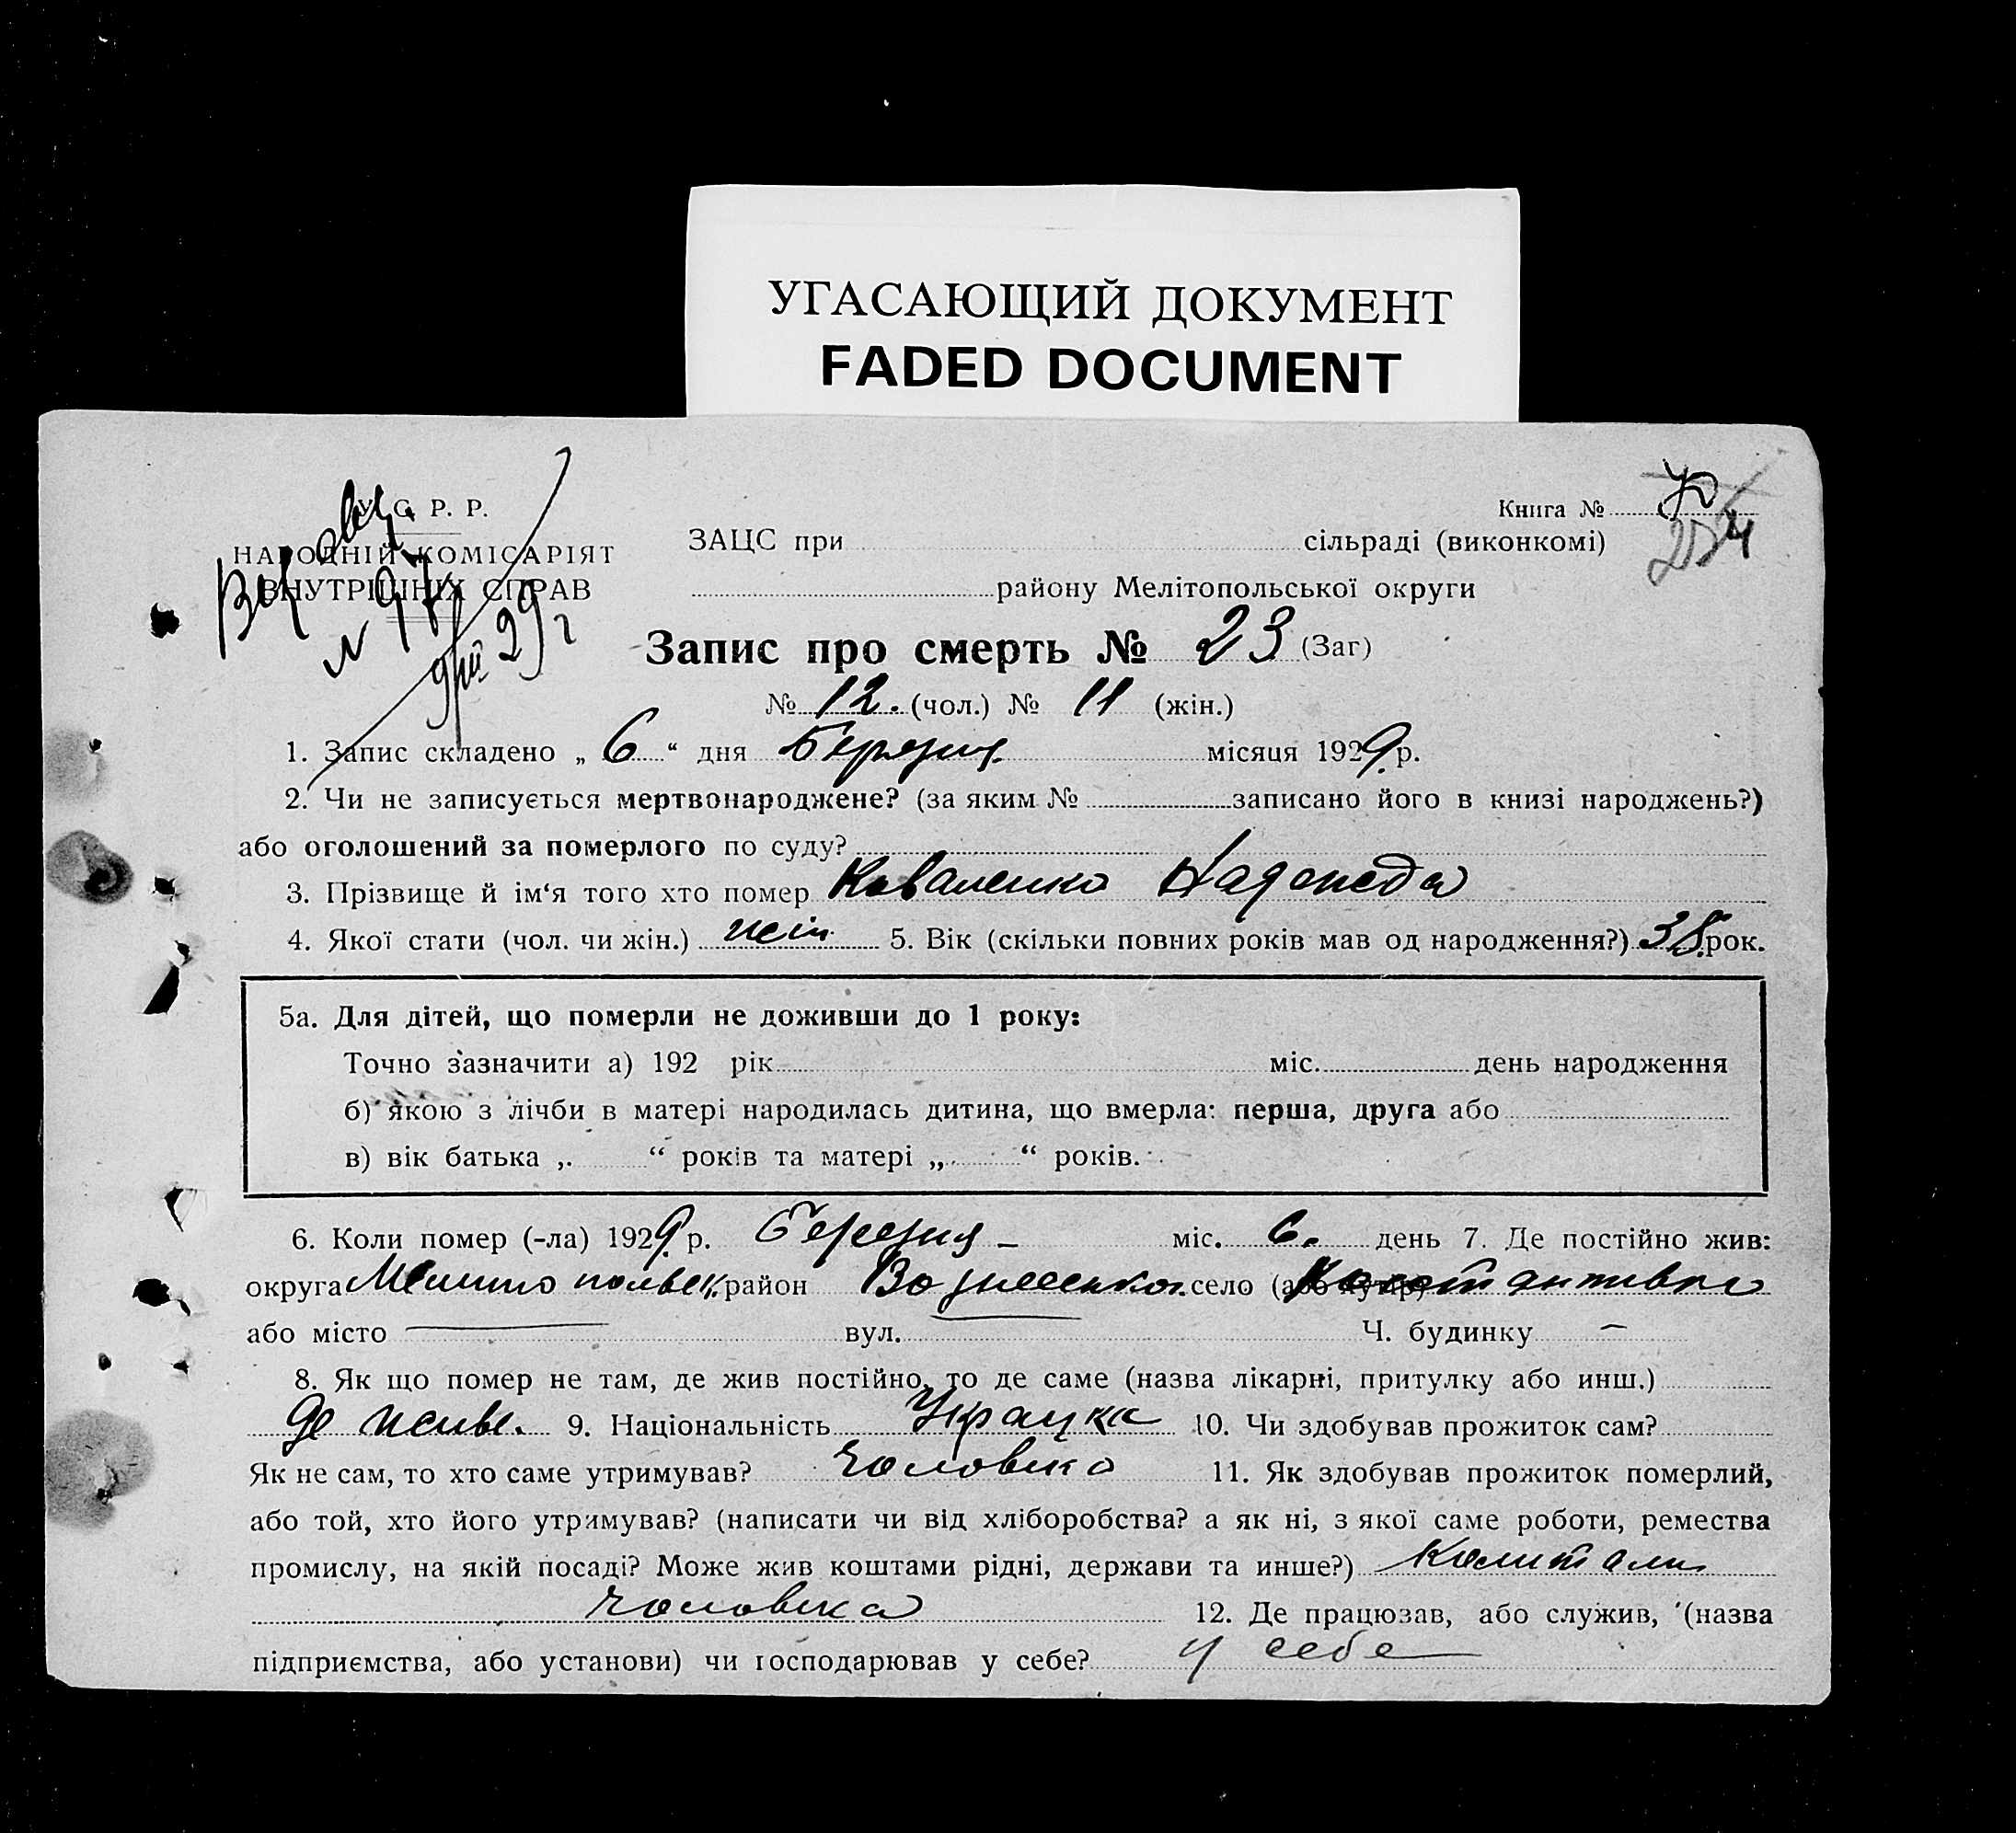 УГАСАЮЩИЙ ДОКУМЕНТ
FADED DOCUMENT
У. С. Р. Р.
НАРОДНІЙ КОМІСАРІЯТ
ВНУТРІШНІХ СПРАВ
№ 97
29 г
Книга №
ЗАЦС при сільраді (виконкомі)
району Мелітопольської округи
Запис про смерть № 23 (Заг)
№ 12. (чол.) № 11 (жін.)
1. Запис складено „ 6 “ дня Березня місяця 1929 р.
2. Чи не записується мертвонароджене? (за яким № записано його в книзі народжень?)
або оголошений за померлого по суду?
3. Прізвище й ім‘я того хто помер Коваленко Надежда
4. Якої стати (чол. чи жін.) жін. 5. Вік (скільки повних років мав од народження?) 38 рок.
5а. Для дітей, що померли не доживши до 1 року:
Точно зазначити а) 192 рік міс. день народження
б) якою з лічби в матері народилась дитина, що вмерла: перша, друга або
в) вік батька „ “ років та матері „ “ років.
6. Коли помер (-ла) 1929 р. Березня – міс. 6. день 7. Де постійно жив:
округа район село (або хутір)
або місто — вул. — Ч. будинку —
8. Як що помер не там, де жив постійно, то де саме (назва лікарні, притулку або инш.)
де живе. 9. Національність Украцка 10. Чи здобував прожиток сам?
Як не сам, то хто саме утримував? 11. Як здобував прожиток померлий,
або той, хто його утримував? (написати чи від хліборобства? а як ні, з якої саме роботи, ремества
промислу, на якій посаді? Може жив коштами рідні, держави та инше?)
чоловіка 12. Де працював, або служив, (назва
підприємства, або установи) чи господарював у себе? у себе